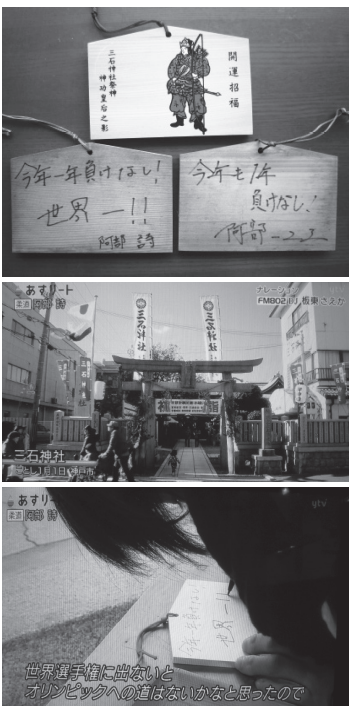 開運招福
三石神社祭神
神功皇后之影
今年一年負けなし!
世界一!!
阿部 詩
今年も1年
負けなし!
阿部一二三
あすリート
柔道 阿部 詩
ナレーター
FM802DJ 板東さえか
三石神社
三石神社
三石神社
ことし1月1日 神戸市
あすリート
柔道 阿部 詩
今年一年負けなし!
世界一!!
世界選手権に出ないと
オリンピックへの道はないかなと思ったので